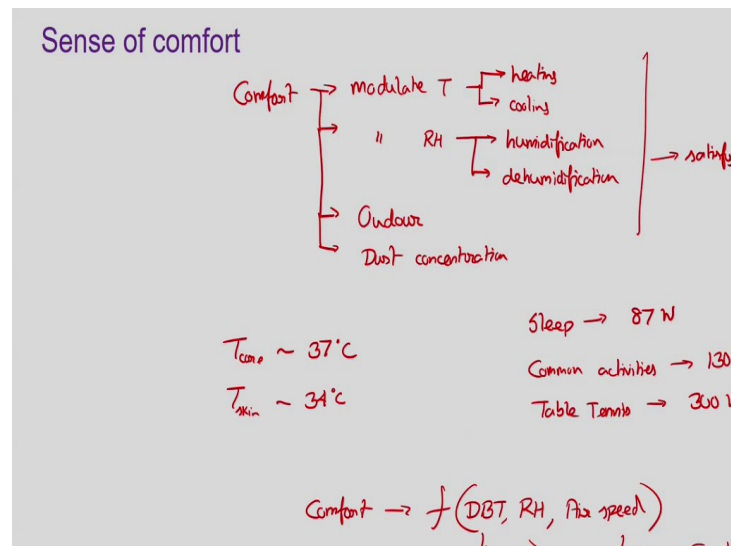 Sense of comfort
Comfort → modulate T → heating
→ cooling
→ " RH → humidification
→ dehumidification
→ satisfy
→ Oudour
→ Dust concentration
Sleep → 87 W
T_core ~ 37°C
Common activities → 130
T_skin ~ 34°C
Table Tennis → 300 W
Comfort → f(DBT, RH, Air speed)